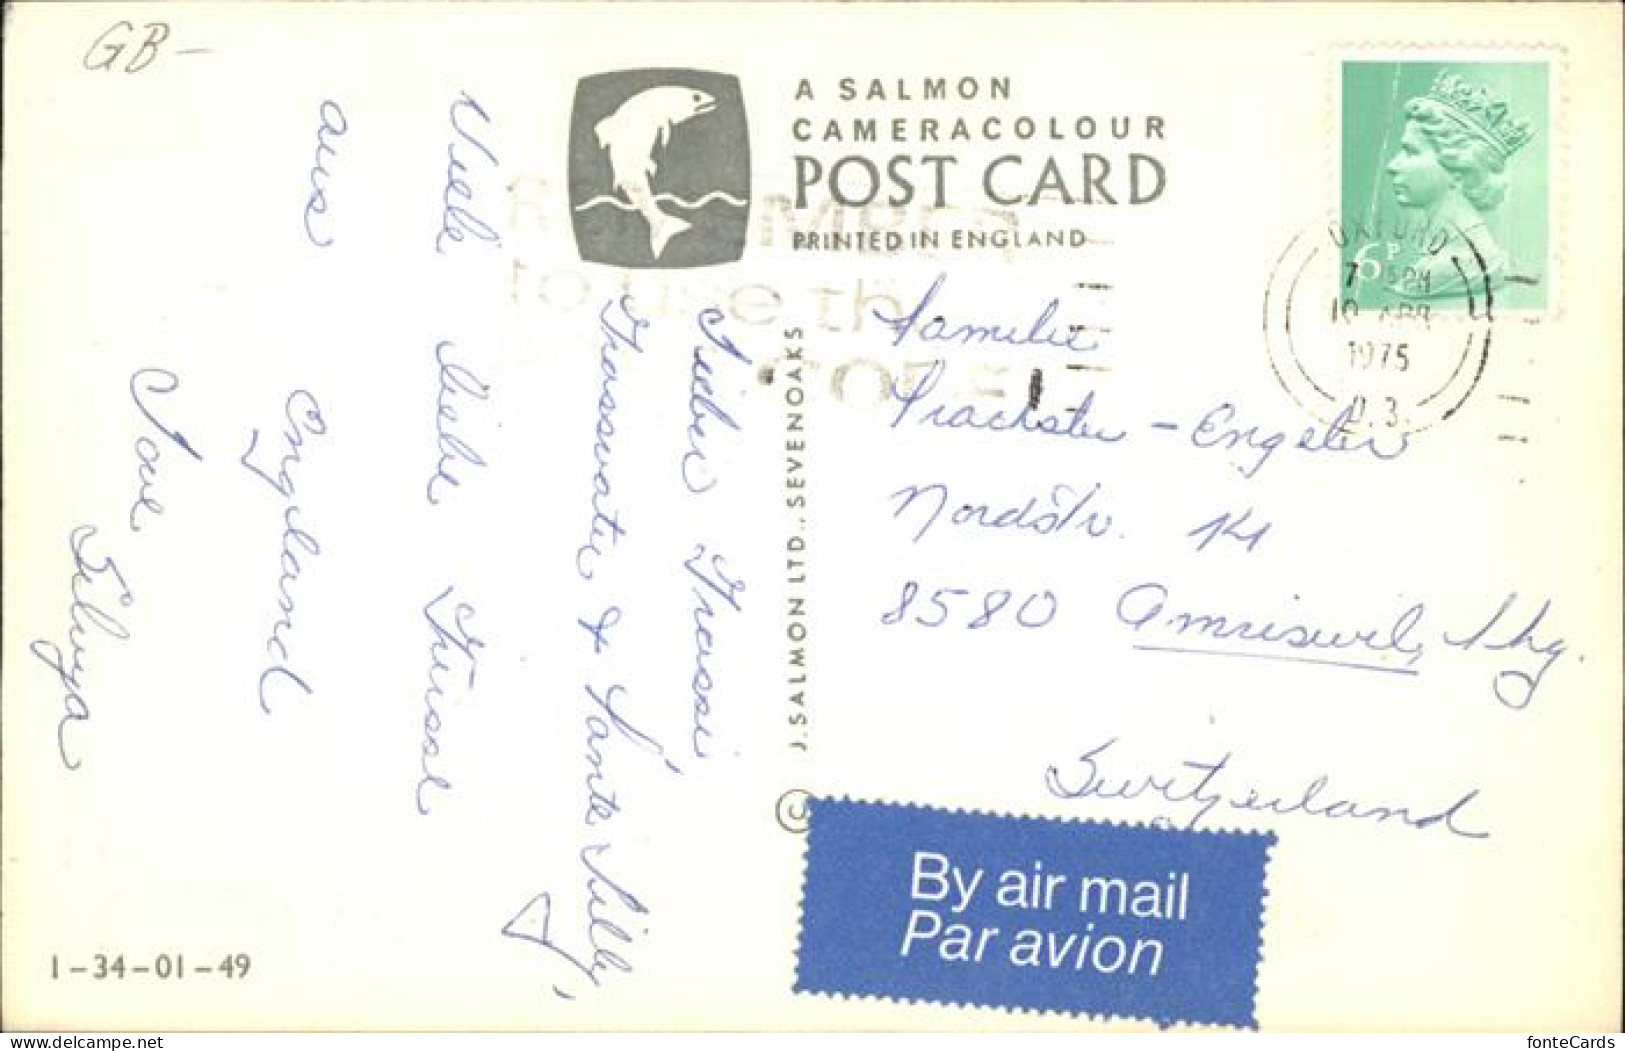 GB-
A SALMON
CAMERACOLOUR
POST CARD
PRINTED IN ENGLAND
6P
OXFORD
7 PM
10 APR
1975
REMEMBER
to use the
CODE
Lieber Grossi,
Grosswater & Tante Lilly,
Viele liebe Grüsse
aus
England
Love
Silvya
J. SALMON LTD., SEVENOAKS
©
Familie
Prachster - Engeler
Nordstr. 14
8580 Amriswil, Thg.
Switzerland
By air mail
Par avion
1-34-01-49
www.delcampe.net
fonteCards